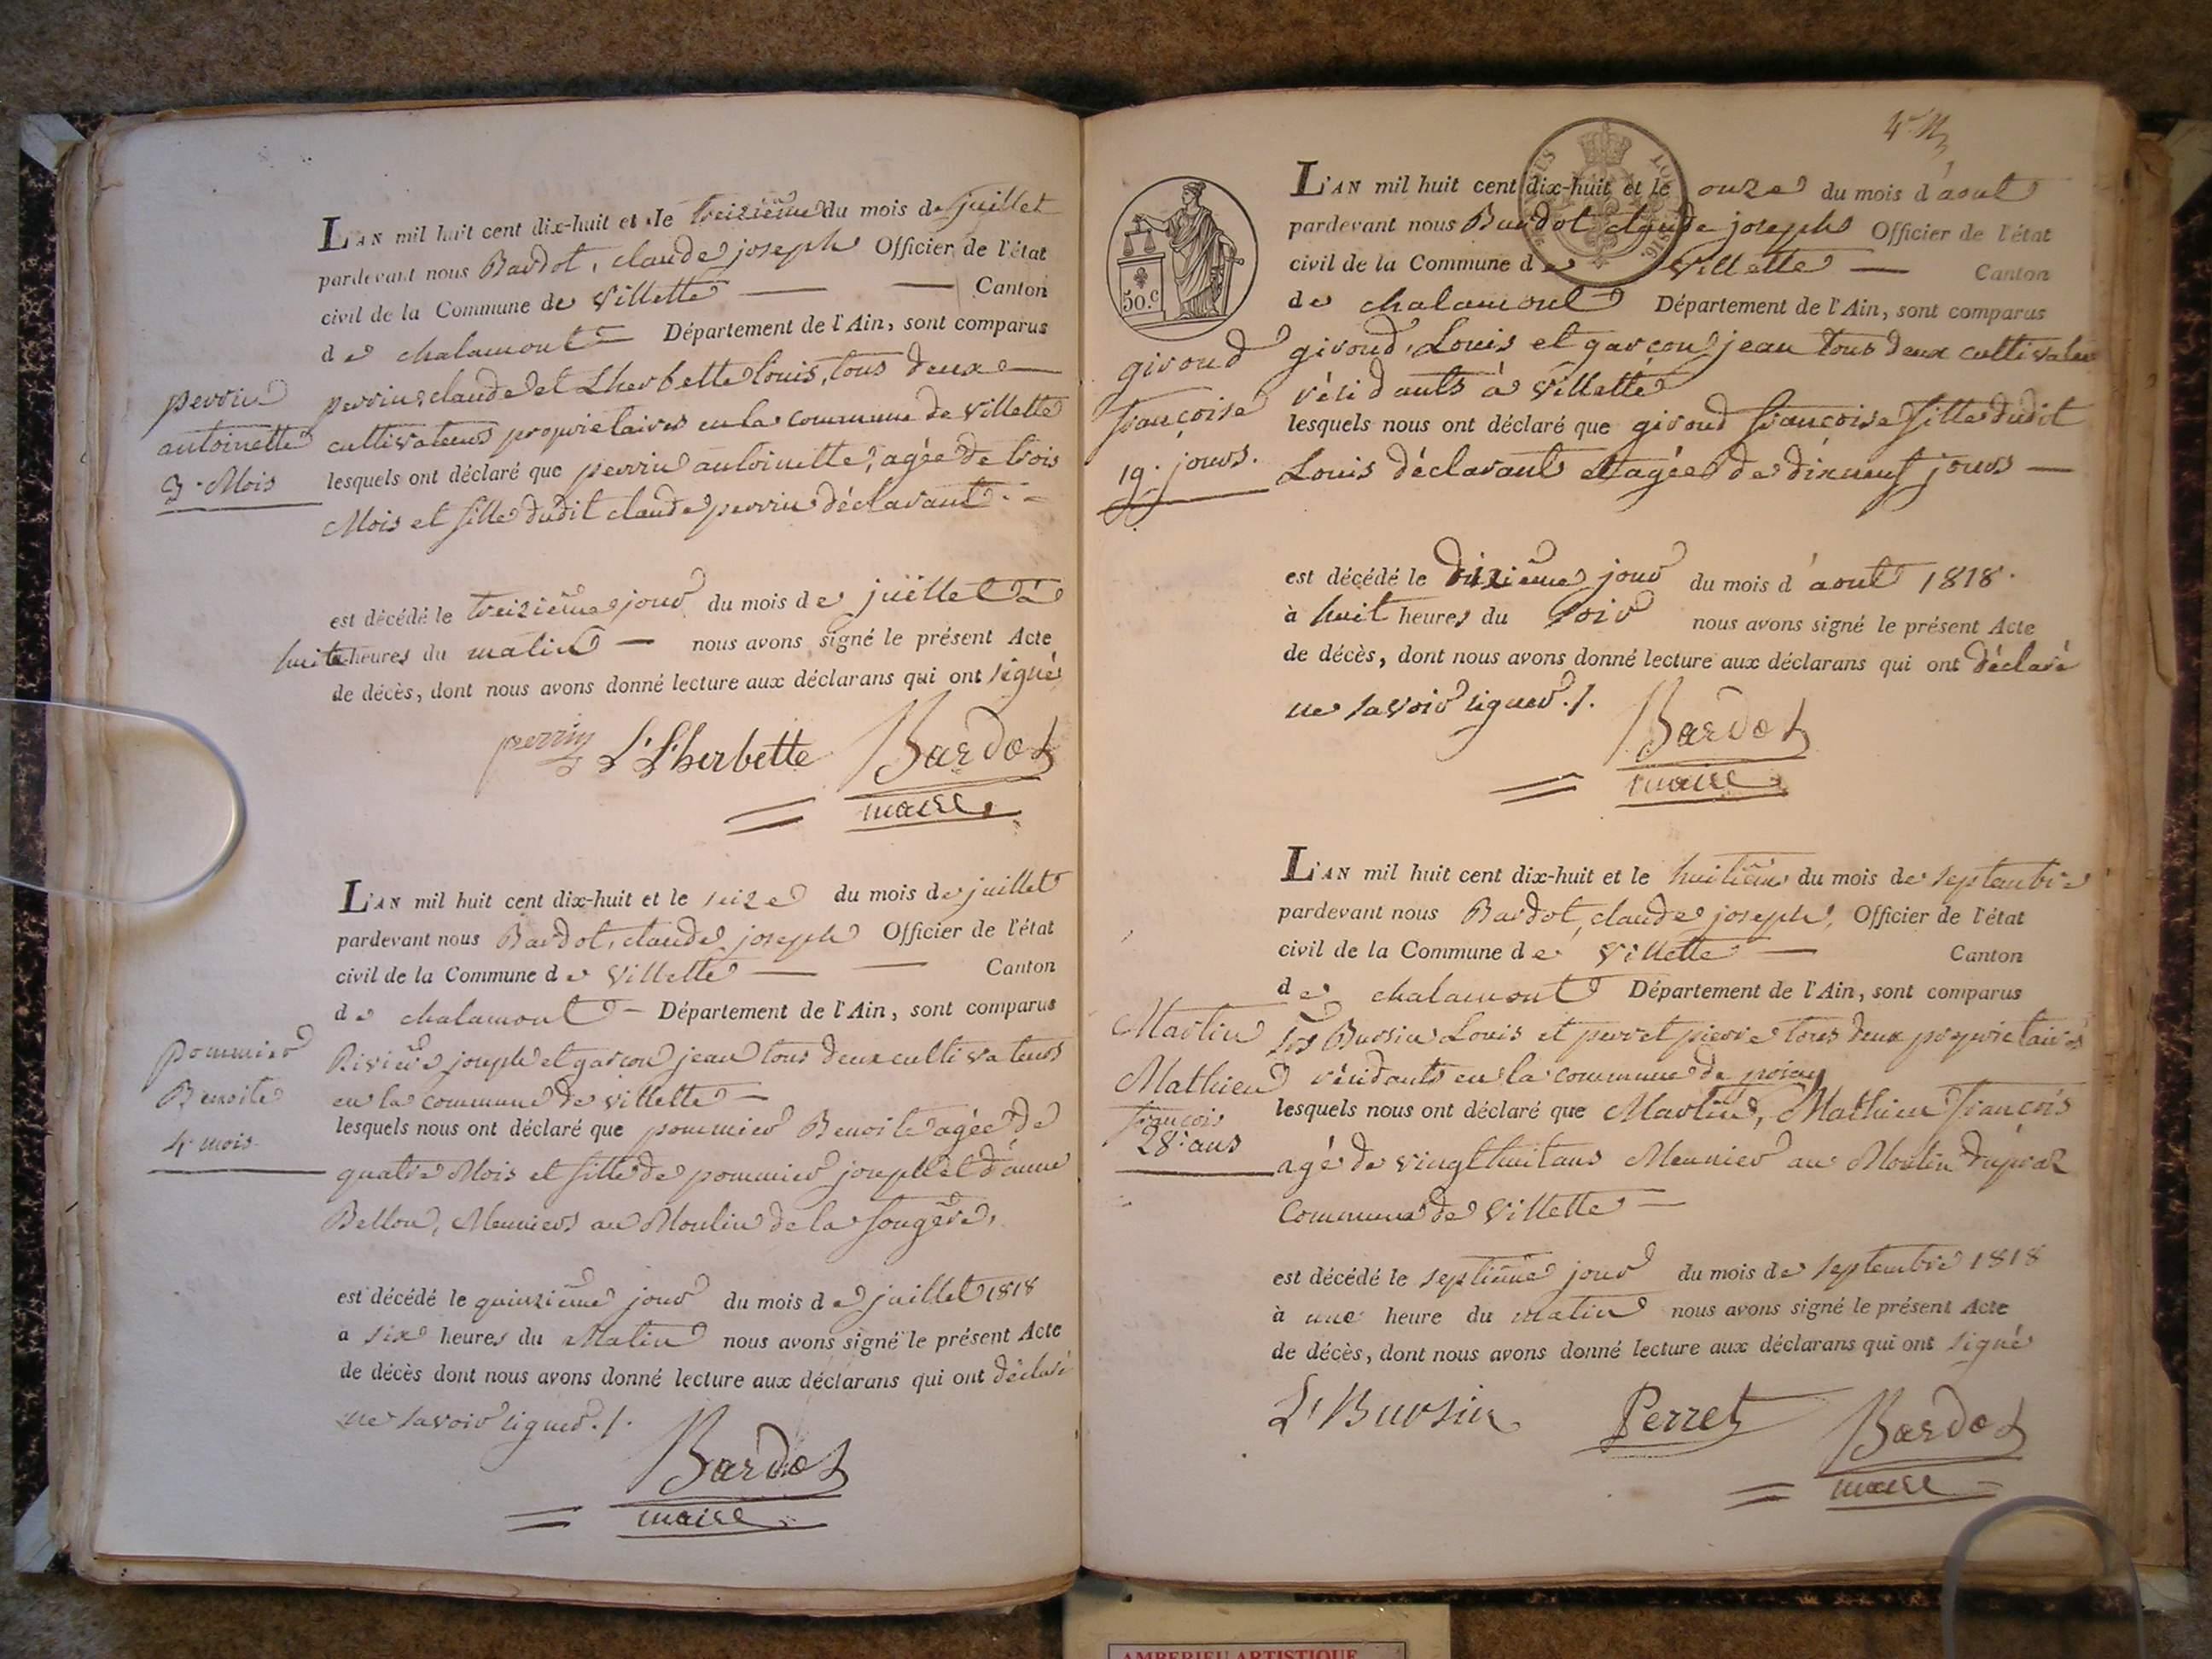 L'AN mil huit cent dix-huit et le treizième du mois de juillet
pardevant nous Bardot, claude joseph Officier de l'état
civil de la Commune de Villette — — Canton
de chalamont — Département de l'Ain, sont comparus
perrin claude et Lherbette louis, tous deux —
cultivateurs propriétaires en la commune de villette
lesquels ont déclaré que perrin antoinette, agée de trois
Mois et fille dudit claude perrin déclarant. -
perrin
antoinette
3. Mois
est décédé le treizième jour du mois de juillet à
huit heures du matin — nous avons signé le présent Acte
de décès, dont nous avons donné lecture aux déclarans qui ont signé
perrin L. Lherbette Bardot
maire
L'AN mil huit cent dix-huit et le seize du mois de juillet
pardevant nous Bardot, claude joseph Officier de l'état
civil de la Commune de Villette — — Canton
de chalamont — Département de l'Ain, sont comparus
Rivière joseph et garçon jean tous deux cultivateurs
en la commune de villette —
lesquels nous ont déclaré que pommier Benoite agée de
quatre Mois et fille de pommier joseph et d'anne
Bellon, Meuniers au Moulin de la fougère,
pommier
Benoite
4 mois
est décédé le quinzième jour du mois de juillet 1818
a six heures du Matin nous avons signé le présent Acte
de décès dont nous avons donné lecture aux déclarans qui ont déclaré
ne savoir signer./.
Bardot
maire
4e
50.c
L'AN mil huit cent dix-huit et le onze du mois d'aout
pardevant nous Bardot claude joseph Officier de l'état
civil de la Commune de Villette — Canton
de chalamont Département de l'Ain, sont comparus
giroud, Louis et garçon jean tous deux cultivateurs
résidants à villette
lesquels nous ont déclaré que giroud françoise fille dudit
Louis déclarant et agée de dixneuf jours —
giroud
françoise
19. jours.
est décédé le dixième jour du mois d'aout 1818.
à huit heures du soir nous avons signé le présent Acte
de décès, dont nous avons donné lecture aux déclarans qui ont déclaré
ne savoir signer./.
Bardot
maire
L'AN mil huit cent dix-huit et le huitième du mois de septembre
pardevant nous Bardot, claude joseph, Officier de l'état
civil de la Commune de Villette — Canton
de chalamont Département de l'Ain, sont comparus
Bursin Louis et perret pierre tous deux propriétaires
résidants en la commune de
lesquels nous ont déclaré que Martin, Mathieu françois
agé de vingt huit ans Meunier au Moulin
commune de Villette —
Martin
Mathieu
françois
28. ans
est décédé le septième jour du mois de septembre 1818
à une heure du matin nous avons signé le présent Acte
de décès, dont nous avons donné lecture aux déclarans qui ont signé
L. Bursin Perret Bardot
maire
AMBERIEU ARTISTIQUE